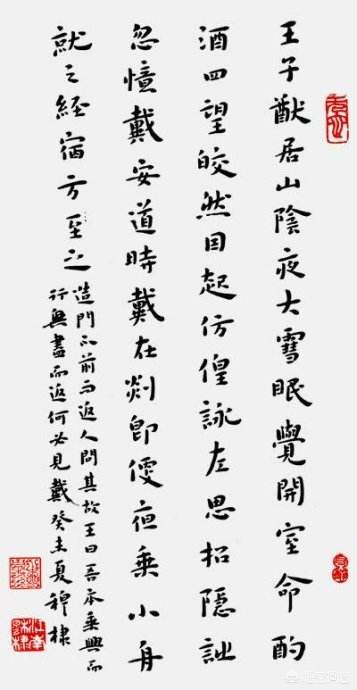 王子猷居山陰夜大雪眠覺開室命酌
酒四望皎然因起仿偟詠左思招隱詩
忽憶戴安道時戴在剡即便夜乘小舟
就之經宿方至之
造門不前而返人問其故王曰吾本乘興而
行興盡而返何必見戴癸未夏穆棣